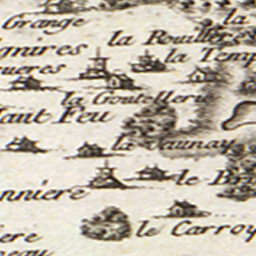 Grange
la
la Rouillere
gnires
la Temp
ueres
la Goutellerie
Haut Feu
la Jaunay
le Br
nniere
le Carroy
ere
neau